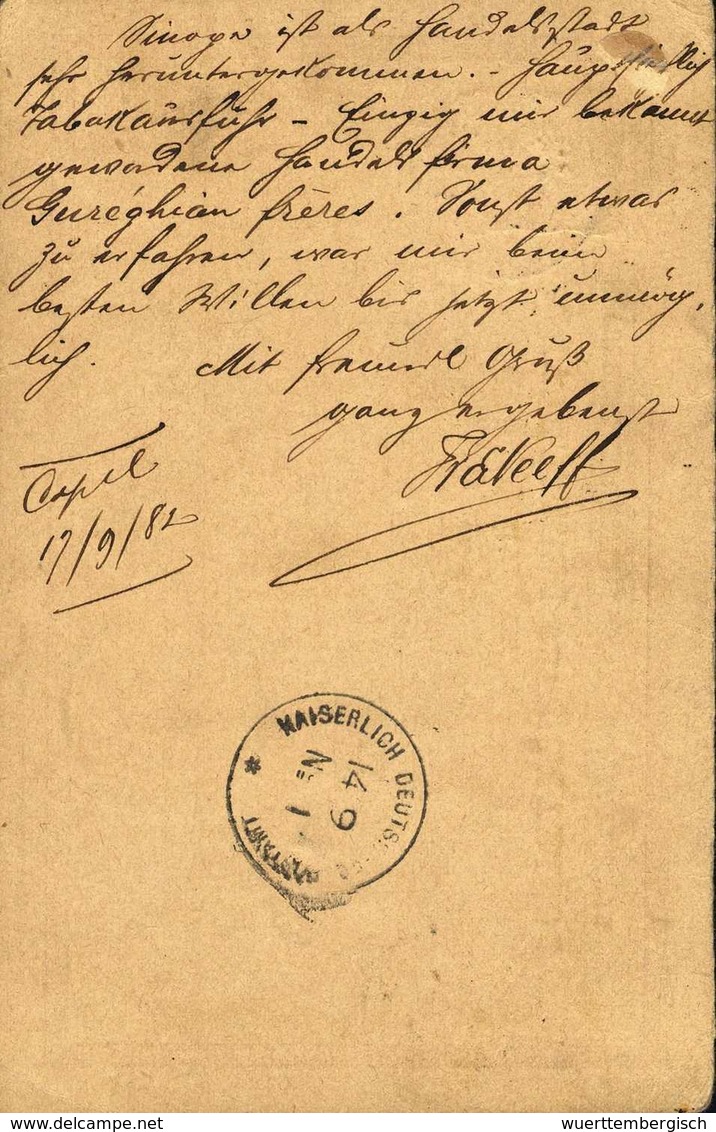 Sinope ist als Handelsstadt
sehr heruntergekommen. - Hauptsächlich
Tabakausfuhr - Einzig mir bekannt
gewordene Handelsfirma
Gureghian frères. Sonst etwas
zu erfahren, war mir beim
besten Willen bis jetzt unmög-
lich. Mit freundl Gruß
ganz ergebenst
17/9/82
KAISERLICH DEUTSCH
14 9
No 1
POSTAMT
www.delcampe.net
wuerttembergisch